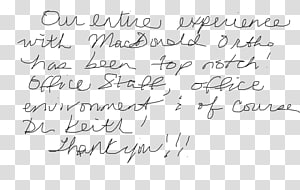 Our entire experience
with MacDonald Ortho
has been top notch!
Office Staff, office
environment & of course
Dr. Keith!
Thank you!!!